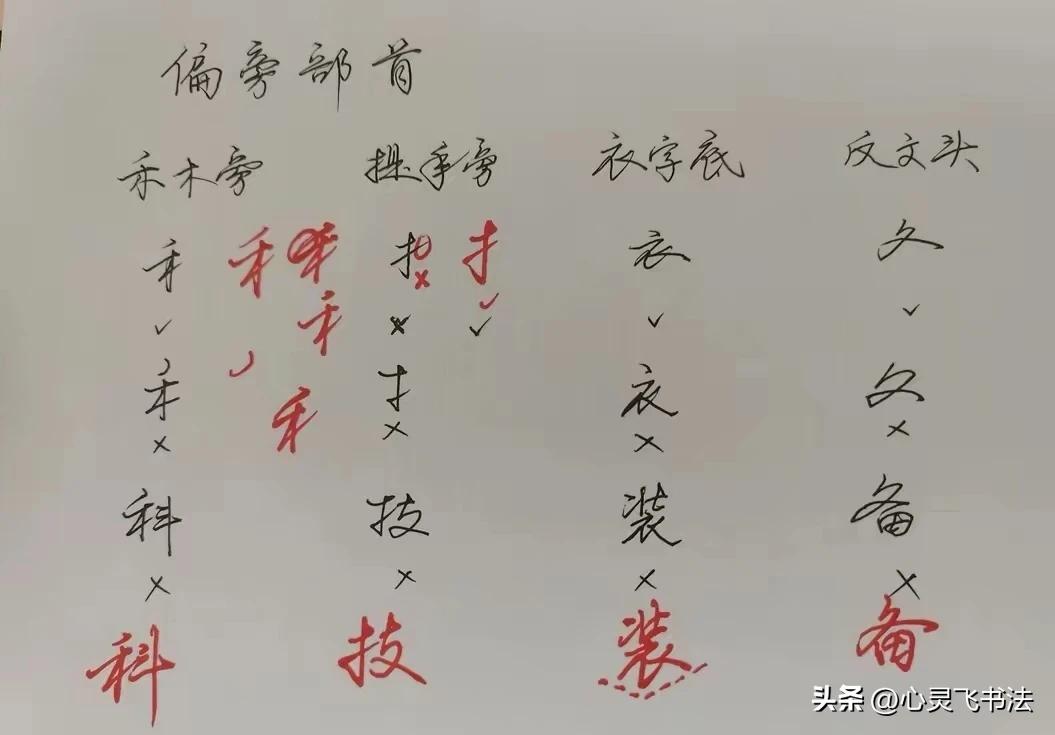 偏旁部首
禾木旁 提手旁 衣字底 反文头
禾 禾 禾 扌 扌 衣 夂
✓ 禾 × ✓ ✓ ✓
禾 禾 扌 衣 夂
× × × ×
科 技 装 备
× × × ×
科 技 装 备
头条 @心灵飞书法